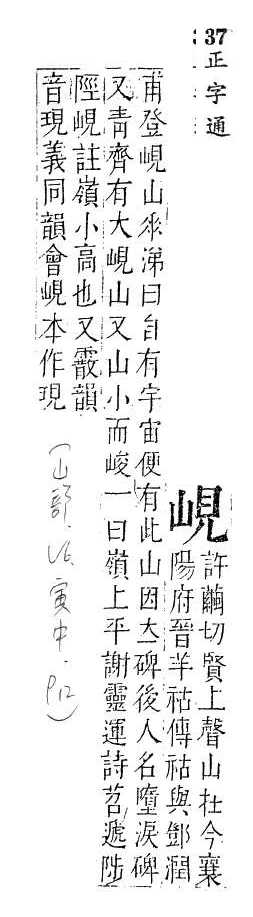 37
正字通
峴
許繭切賢上聲山在今襄
陽府晉羊祜傳祜與鄒潤
甫登峴山垂涕曰自有宇宙便有此山因立碑後人名墮淚碑
又青齊有大峴山又山小而峻一曰嶺上平謝靈運詩苕遞陟
陘峴註嶺小高也又霰韻
音現義同韻會峴本作現
(山部. 寅中. P12)